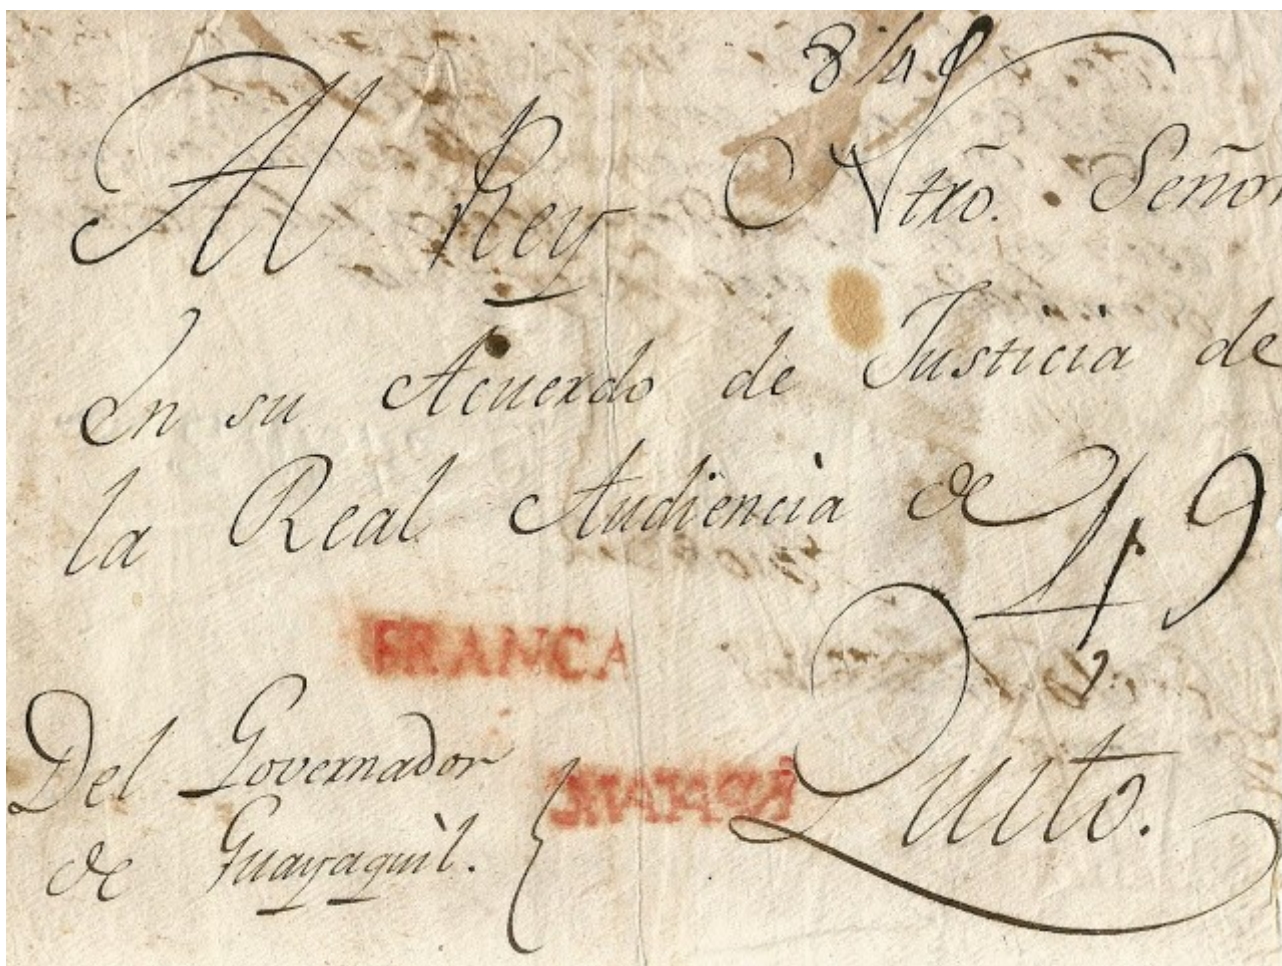 Al Rey Ntro. Señor
En su Acuerdo de Justicia de
la Real Audiencia de
49
FRANCA
Quito.
Del Governador
de Guayaquil.